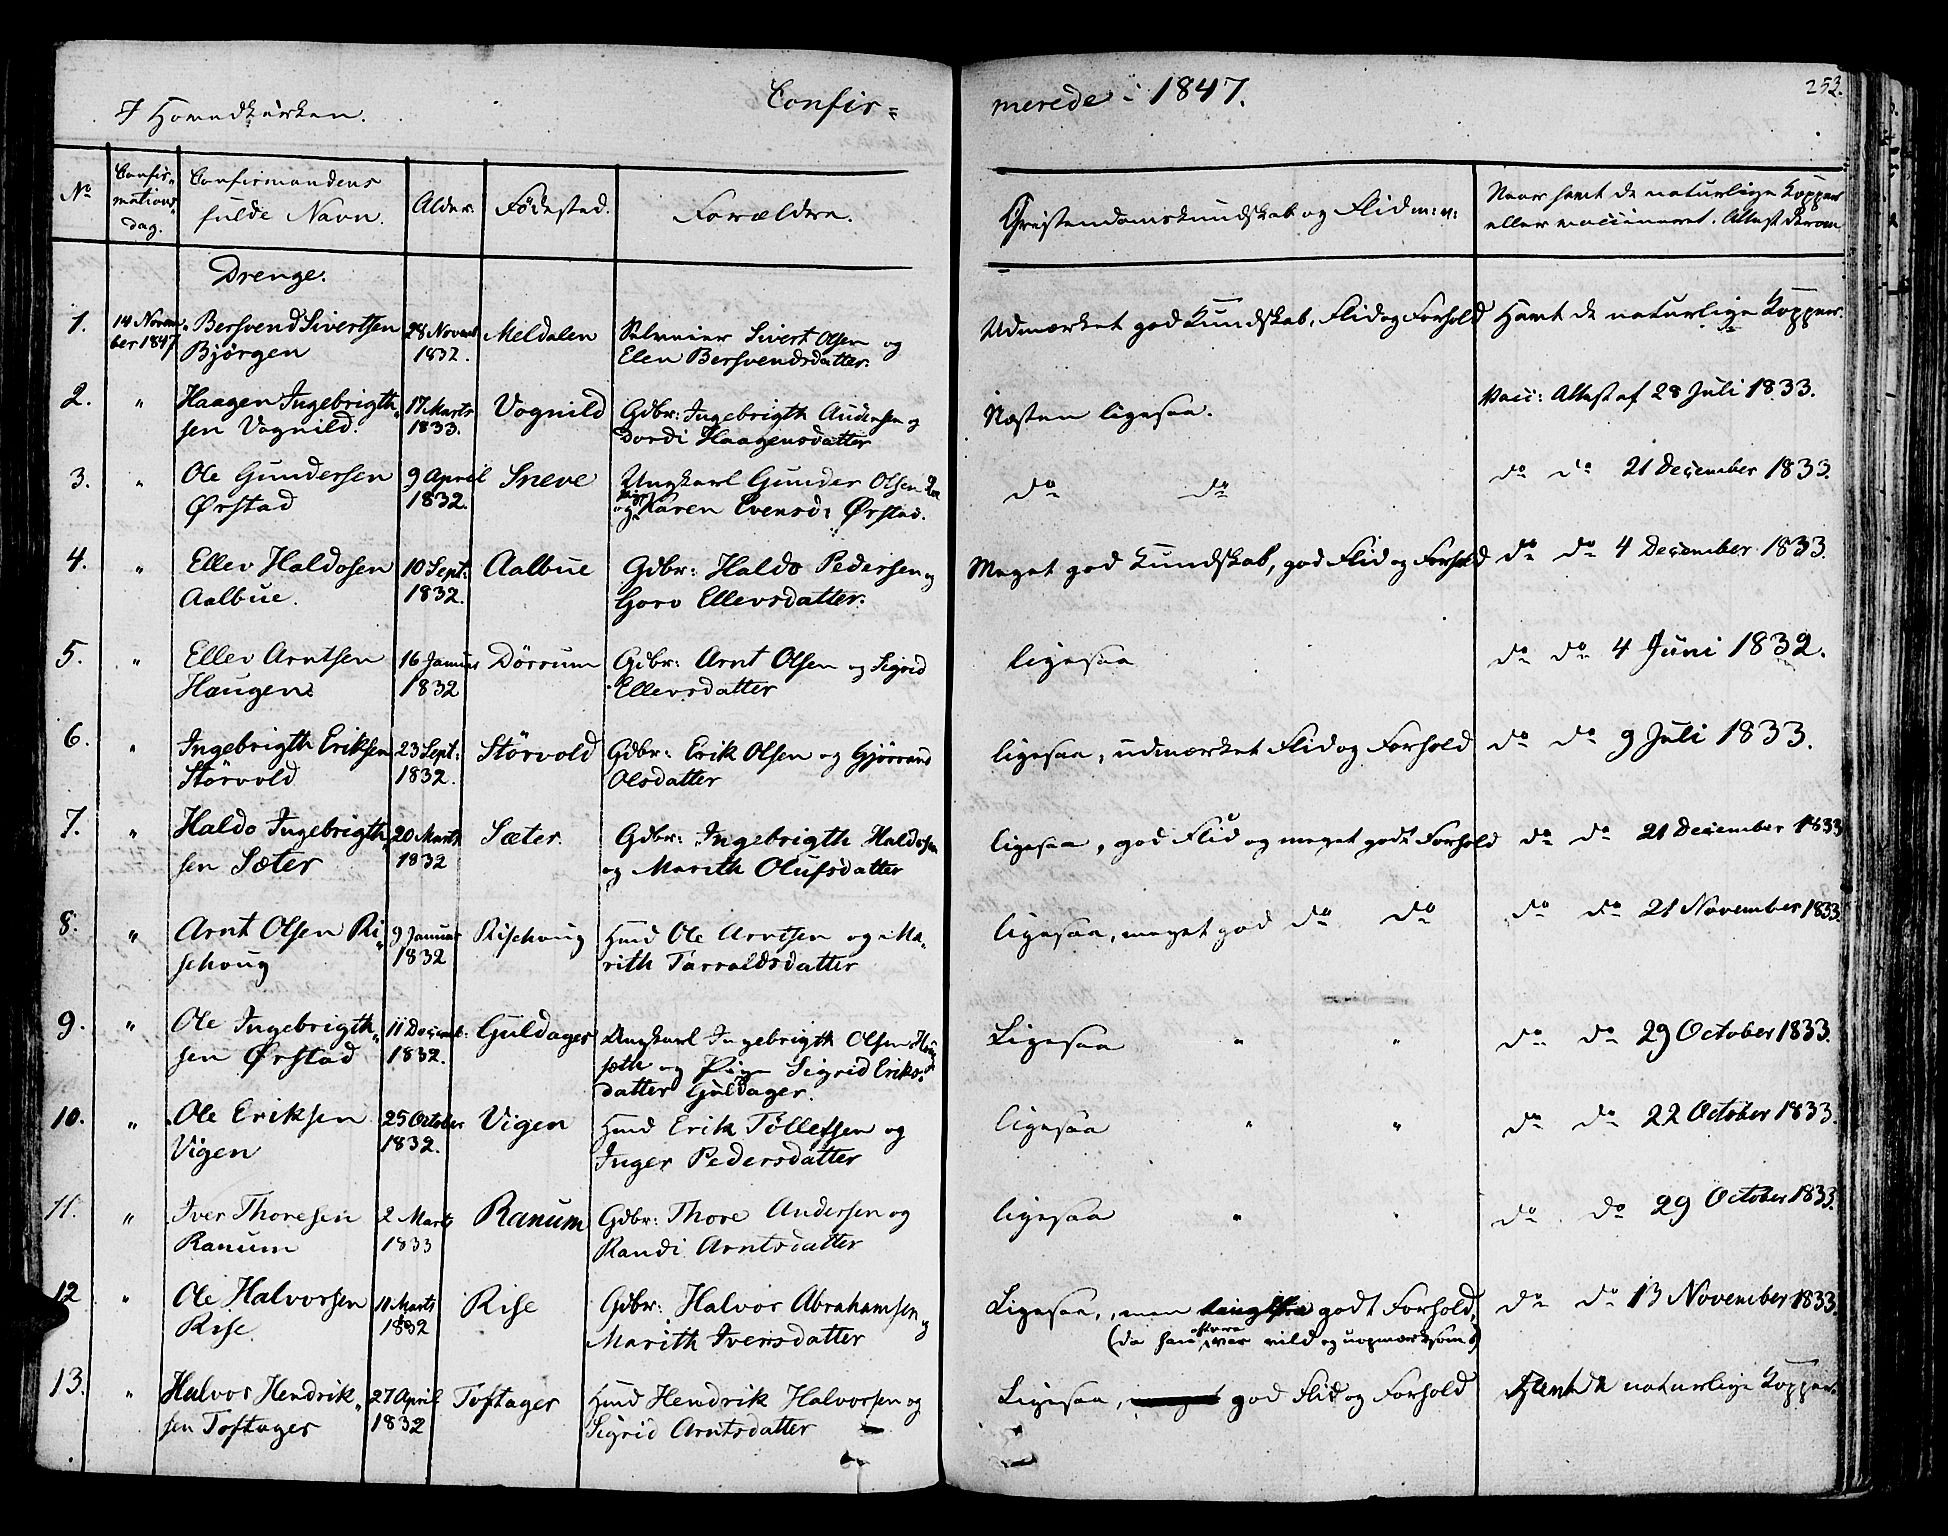 I Hovedkirken.
Confir=
merede i 1847.
253.
No
Confir-
mations-
dag.
Confirmandens
fulde Navn.
Alder.
Fødested.
Forældre.
Christendomskundskab og Flid m: v:
Naar havt de naturlige Kopper
eller vaccineret. Attest derom
Drenge.
1.
14 Novem
ber 1847
Bersvend Sivertsen
Bjørgen
28 Novemb
1832.
Meldalen
Selveier Sivert Olsen og
Elen Bersvendsdatter.
Udmærket god Kundskab, Flid og Forhold
Havt de naturlige Kopper.
2.
"
Haagen Ingebrigth-
sen Vognild.
17 Marts
1833.
Vognild
Gdbr: Ingebrigth Andersen og
Dordi Haagensdatter
Næsten ligesaa.
Vacc: Attest af 28 Juli 1833.
3.
"
Ole Gundersen
Ørstad
9 April
1832.
Sneve
Ungkarl Gunder Olsen
og Pige Karen Evensd: Ørstad.
do do
do do 21 December 1833.
4.
"
Ellev Haldosen
Aalbue.
10 Sept:
1832.
Aalbue
Gdbr: Haldo Pedersen og
Goro Ellevsdatter.
Meget god Kundskab, god Flid og Forhold
do do 4 December 1833.
5.
"
Ellev Arntsen
Haugen
16 Januar
1832
Dørrum
Gdbr: Arnt Olsen og Sigrid
Ellevsdatter
ligesaa
do do 4 Juni 1832.
6.
"
Ingebrigth Eriksen
Størvold
23 Sept:
1832.
Størvold
Gdbr: Erik Olsen og Gjørrand
Olsdatter
ligesaa, udmærket Flid og Forhold
do do 9 Juli 1833.
7.
"
Haldo Ingebrigth
sen Sæter
20 Marts
1832
Sæter.
Gdbr: Ingebrigth Haldosen
og Marith Olufsdatter
ligesaa, god Flid og meget godt Forhold
do do 21 December 1833
8.
"
Arnt Olsen Ri-
sehoug
9 Januar
1832
Risehoug
Hmd Ole Arntsen og Ma-
rith Tarraldsdatter
ligesaa, meget god do do
do do 21 November 1833.
9.
"
Ole Ingebrigth-
sen Ørstad
11 Decemb:
1832.
Guldager
Ungkarl Ingebrigth Olsen
og Pige Sigrid Eriks-
datter Guldager.
Ligesaa " "
do do 29 October 1833.
10.
"
Ole Eriksen
Vigen
25 October
1832.
Vigen
Hmd Erik Tøllefsen og
Inger Pedersdatter
ligesaa " "
do do 22 October 1833.
11.
"
Iver Thoresen
Ranum
2 Marts
1833
Ranum
Gdbr: Thore Andersen og
Randi Arntsdatter
ligesaa " "
do do 29 October 1833.
12
"
Ole Halvorsen
Rise.
11 Marts
1832
Rise
Gdbr: Halvor Abrahamsen og
Marith Iversdatter
Ligesaa, men godt Forhold,
(da han var vild og uopmærksom)
do do 13 November 1833.
13.
"
Halvor Hendrik-
sen Toftager
27 April
1832
Toftager
Hmd Hendrik Halvorsen og
Sigrid Arntsdatter
Ligesaa, god Flid og Forhold
havt de naturlige Kopper.